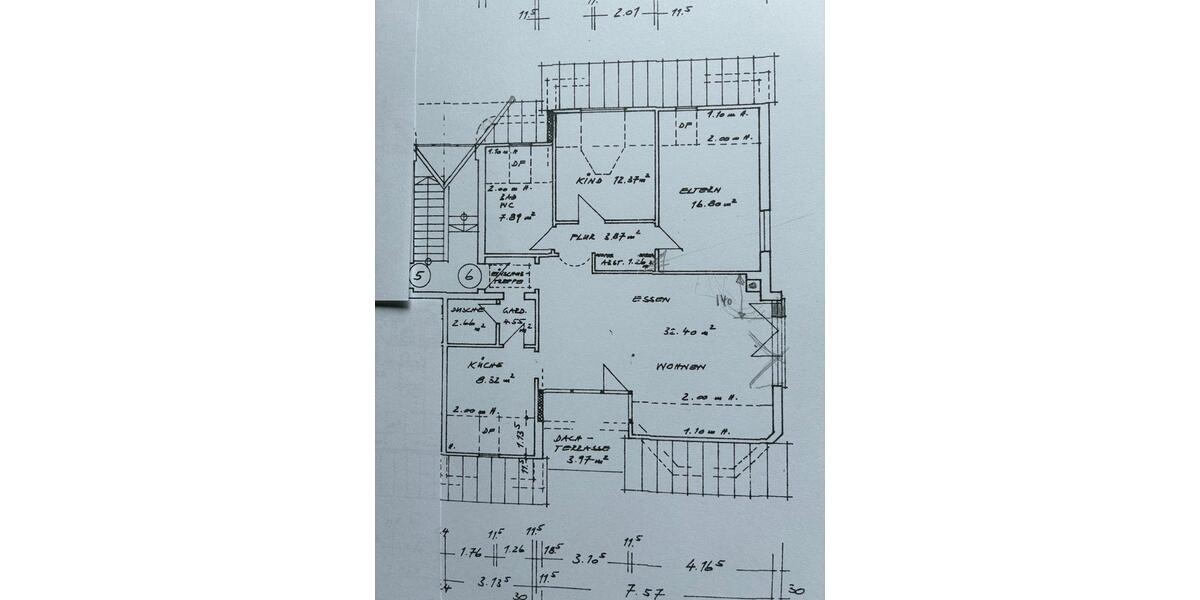 11.5
11.
2.01
11.5
1.10 m H.
DF
2.00 m H.
1.10 m H
DF
2.00 m H.
BAD
WC
7.89 m²
KIND 12.37 m²
ELTERN
16.80 m²
FLUR 3.87 m²
ABST. 1.26 m²
5
6
EINSCHUB-
TREPPE
DUSCHE
2.66 m²
GARD.
4.55 m²
ESSEN
140
32.40 m²
WOHNEN
KÜCHE
8.32 m²
2.00 m H.
DF
1.13⁵
11.5
H.
2.00 m H.
1.10 m H.
DACH-
TERRASSE
3.97 m²
.4
11.5
11.5
11.5
1.76
1.26
18.5
3.10⁵
4.16⁵
.4
3.13⁵
11.5
7.57
30
30